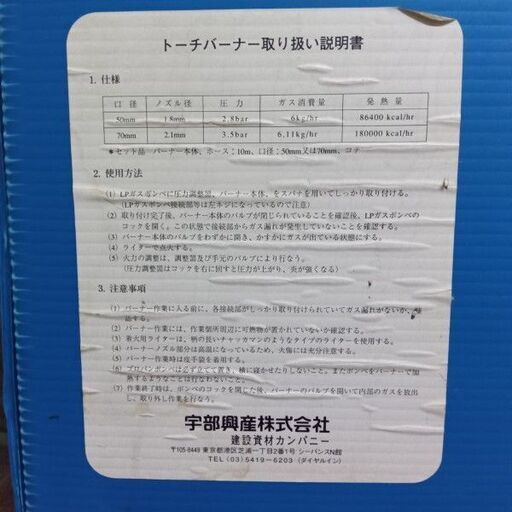 トーチバーナー取り扱い説明書
1. 仕様
口径 ノズル径 圧力 ガス消費量 発熱量
50mm 1.8mm 2.8bar 6kg/hr 86400 kcal/hr
70mm 2.1mm 3.5bar 6.11kg/hr 180000 kcal/hr
*セット品…バーナー本体、ホース:10m、口径:50mm又は70mm、コテ
2. 使用方法
(1) LPガスボンベに圧力調整器、バーナー本体、をスパナを用いてしっかり取り付ける。
(LPガスボンベ接続部等は左ネジになっているので注意)
(2) 取り付け完了後、バーナー本体のバルブが閉じられていることを確認後、LPガスボンベの
コックを開く。この状態で接続部からガス漏れが発生していないことを確認する。
(3) バーナー本体のバルブをわずかに開き、かすかにガスが出ている状態にする。
(4) ライターで点火する。
(5) 火力の調整は、調整器及び手元のバルブにより行なう。
(圧力調整器はコックを右に回すと圧力が上がり、炎が強くなる)
3. 注意事項
(1) バーナー作業に入る前に、各接続部がしっかり取り付けられていてガス漏れがないか、確
認する。
(2) バーナー作業には、作業個所周辺に可燃物が置かれていないか確認する。
(3) 着火用ライターは、柄の長いチャッカマンのようなタイプのライターを使用する。
(4) バーナーノズル部分は高温になっているため、火傷には充分注意する。
(5) バーナー作業時は皮手袋を着用する。
(6) プロパンボンベは必ず立てて置き、横に寝かせたりしない。またバーナーで加
熱するようなことは行なわない。
(7) 作業終了時は、ボンベのコックを閉じた後、バーナーのバルブを開いて内部のガスを放出
し、取り外し作業を行なう。
宇部興産株式会社
建設資材カンパニー
〒105-8449 東京都港区芝浦一丁目2番1号 シーバンスN館
TEL (03) 5419-6203 (ダイヤルイン)